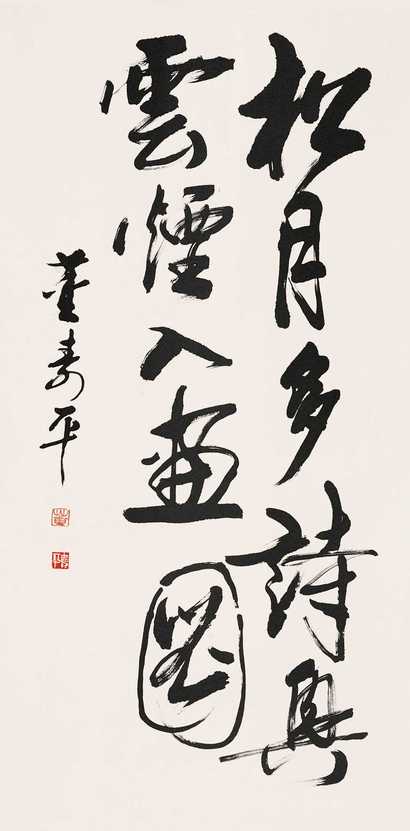 松月多詩興
雲煙入畫圖
董壽平